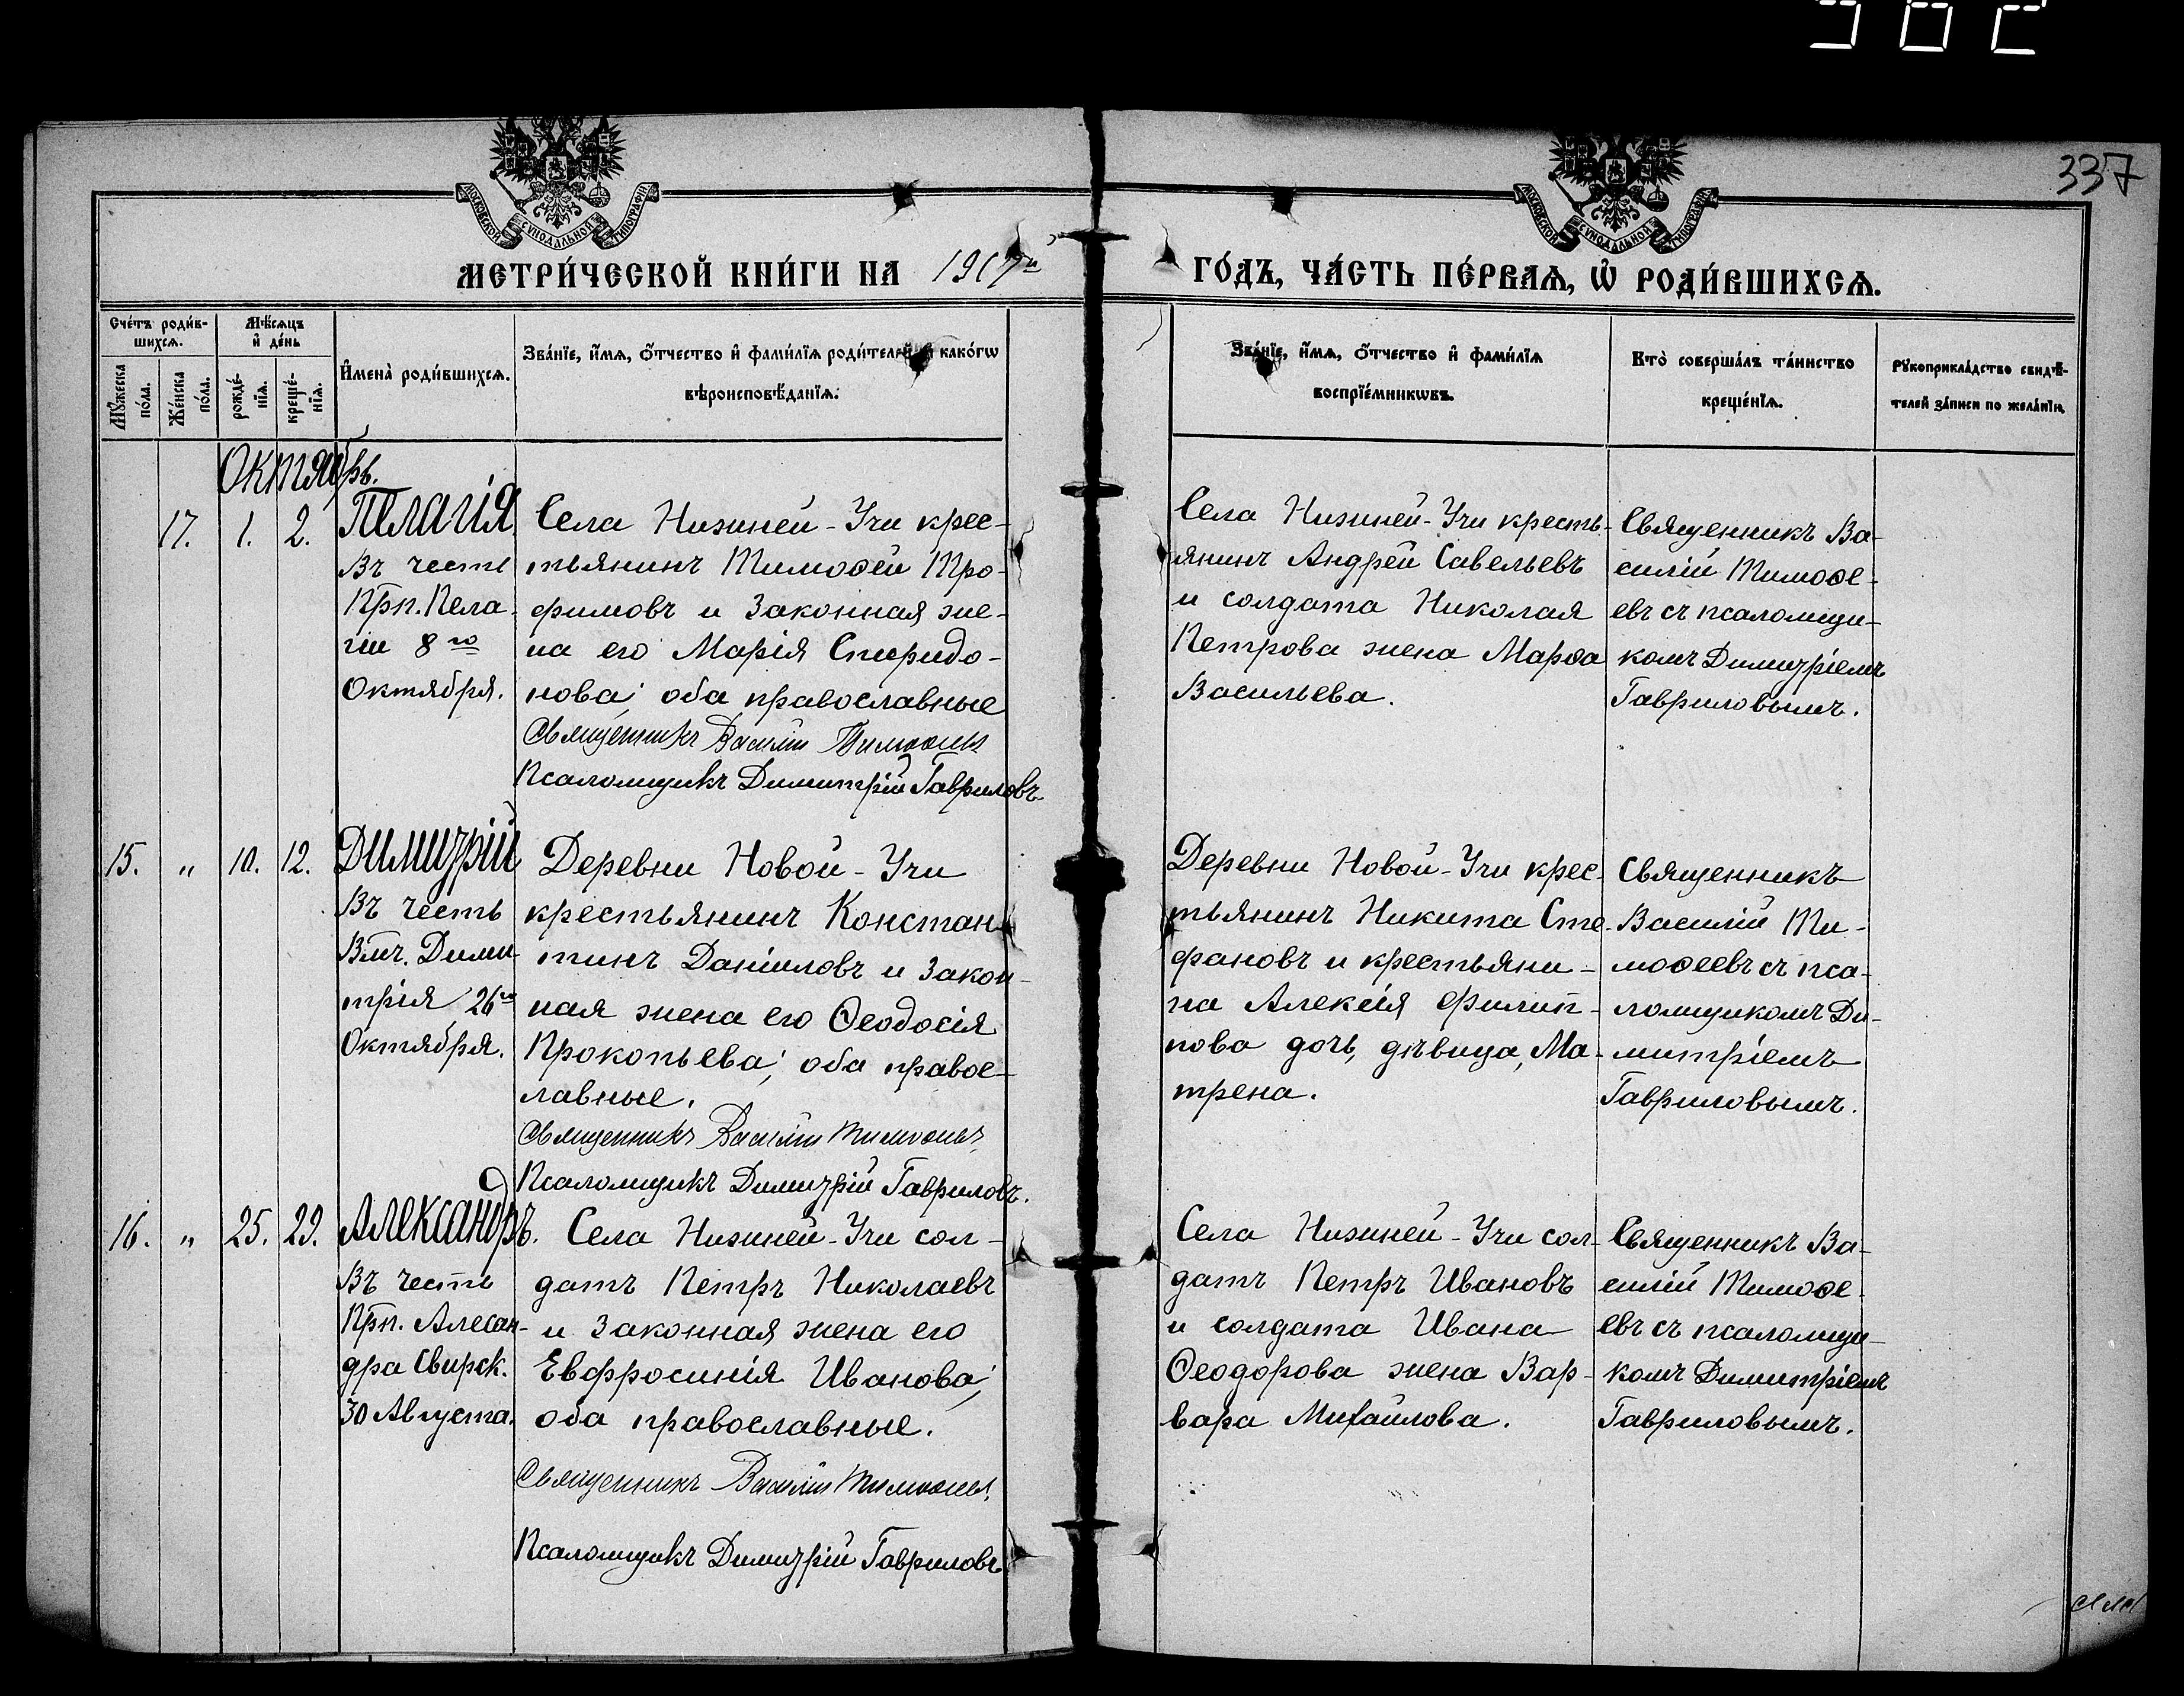 337
МОСКОВСКОЙ СѴНОДАЛЬНОЙ ТИПОГРАФІИ
МОСКОВСКОЙ СѴНОДАЛЬНОЙ ТИПОГРАФІИ
МЕТРИ́ЧЕСКОЙ КНИ́ГИ НА 1917й
ГО́ДЪ, ЧА́СТЬ ПЕ́РВАѦ, Ѡ҆ РОДИ́ВШИХСѦ.
Сче́тъ роди́в-
шихсѧ.
Мѣ́сѧцъ
и҆ де́нь
Мꙋ́жеска
по́ла.
Же́нска
по́ла.
рожде́-
нїѧ.
креще́-
нїѧ.
И҆мена̀ роди́вшихсѧ.
Зва́нїе, и҆́мѧ, ѻ҆́тчество и҆ фами́лїѧ роди́телей и҆ како́гѡ
вѣроисповѣ́данїѧ.
Зва́нїе, и҆́мѧ, ѻ҆́тчество и҆ фами́лїѧ
воспрїе́мникѡвъ.
Кто̀ соверша́лъ та́инство
креще́нїѧ.
Рꙋкоприкла́дство свидѣ́-
телей за́писи по жела́нїю.
Октябрь.
17. 1. 2.
Пелагія.
Въ честь
Прп. Пела-
гіи 8го
Октября.
Села Нижней-Учи крес-
тьянинъ Тимоѳей Тро-
фимовъ и законная же-
на его Марія Спиридо-
нова; оба православные
Священникъ Василій Тимоѳеевъ
Псаломщикъ Димитрій Гавриловъ
Села Нижней-Учи кресть-
янинъ Андрей Савельевъ
и солдата Николая
Петрова жена Марѳа
Васильева.
Священникъ Ва-
силій Тимоѳе-
евъ съ псаломщи-
комъ Димитріемъ
Гавриловымъ.
15. " 10. 12.
Димитрій
Въ честь
Вмч. Дими-
трія 26го
Октября.
Деревни Новой-Учи
крестьянинъ Констан-
тинъ Даніиловъ и закон-
ная жена его Ѳеодосія
Прокопьева; оба правос-
лавные.
Священникъ Василій Тимоѳеевъ
Псаломщикъ Димитрій Гавриловъ.
Деревни Новой-Учи крес-
тьянинъ Никита Сте-
фановъ и крестьяни-
на Алексія Филип-
пова дочь, дѣвица, Ма-
трена.
Священникъ
Василій Ти-
моѳеевъ съ пса-
ломщикомъ Ди-
митріемъ
Гавриловымъ.
16. " 25. 29.
Александръ.
Въ честь
Прп. Алесан-
дра Свирск.
30 Августа.
Села Нижней-Учи сол-
датъ Петръ Николаевъ
и законная жена его
Евфросинія Иванова;
оба православные.
Священникъ Василій Тимоѳеевъ
Псаломщикъ Димитрій Гавриловъ
Села Нижней-Учи сол-
датъ Петръ Ивановъ
и солдата Ивана
Ѳеодорова жена Вар-
вара Михайлова.
Священникъ Ва-
силій Тимоѳе-
евъ съ псаломщи-
комъ Димитріемъ
Гавриловымъ.